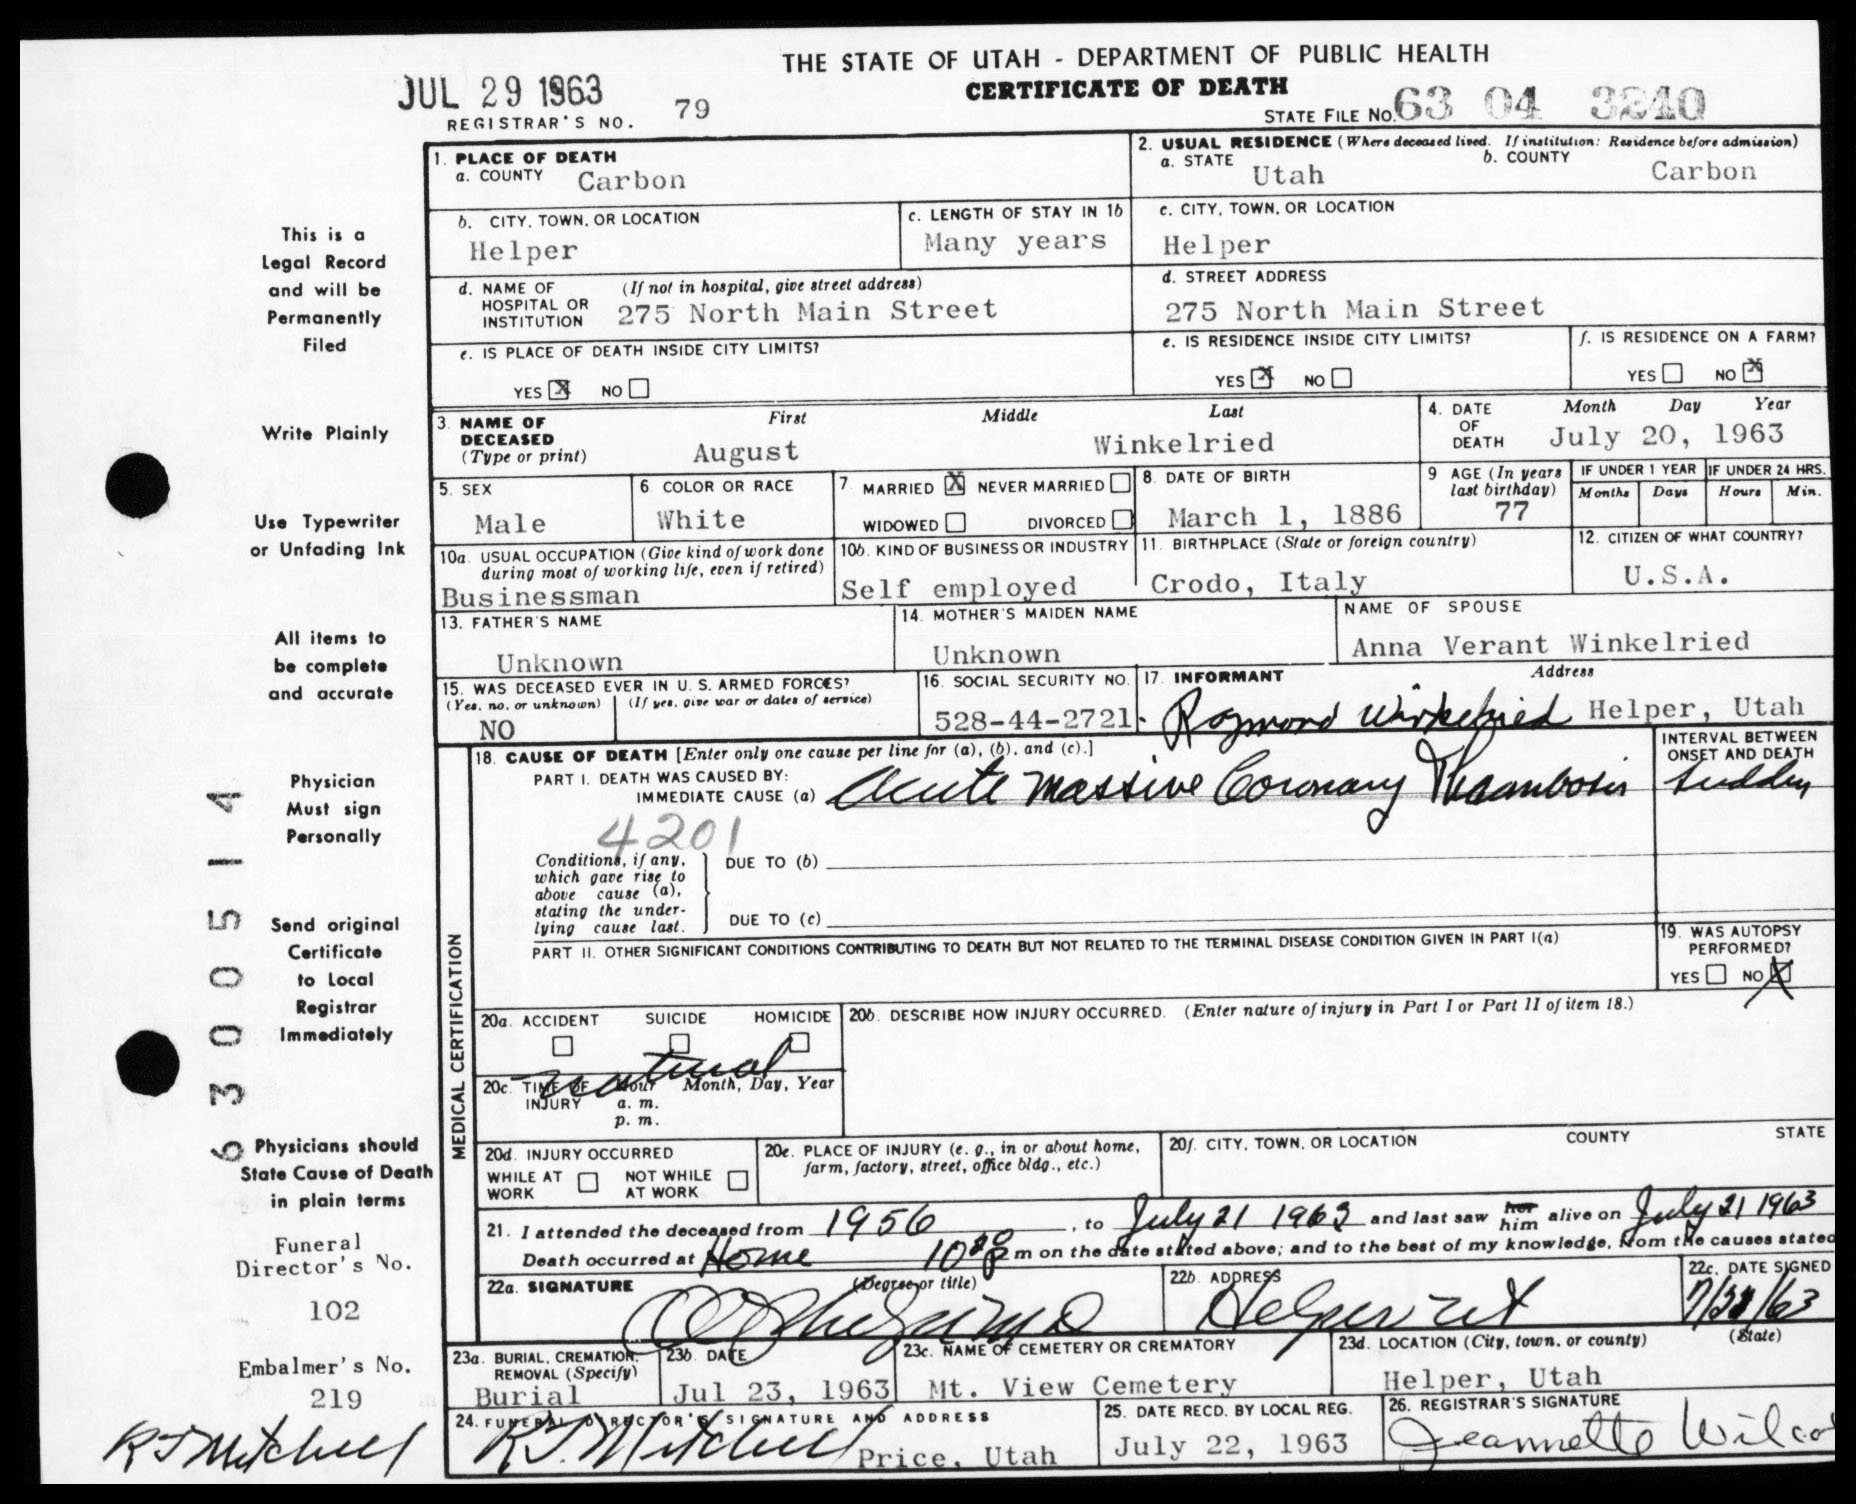 THE STATE OF UTAH - DEPARTMENT OF PUBLIC HEALTH
CERTIFICATE OF DEATH
JUL 29 1963
REGISTRAR'S NO. 79
STATE FILE NO. 63 04 3240
This is a
Legal Record
and will be
Permanently
Filed
Write Plainly
Use Typewriter
or Unfading Ink
All items to
be complete
and accurate
Physician
Must sign
Personally
Send original
Certificate
to Local
Registrar
Immediately
Physicians should
State Cause of Death
in plain terms
Funeral
Director's No.
102
Embalmer's No.
219
RJ Mitchell
6300514
1. PLACE OF DEATH
a. COUNTY Carbon
2. USUAL RESIDENCE (Where deceased lived. If institution: Residence before admission)
a. STATE Utah b. COUNTY Carbon
b. CITY, TOWN, OR LOCATION
Helper
c. LENGTH OF STAY IN 1b
Many years
c. CITY, TOWN, OR LOCATION
Helper
d. NAME OF (If not in hospital, give street address)
HOSPITAL OR
INSTITUTION 275 North Main Street
d. STREET ADDRESS
275 North Main Street
e. IS PLACE OF DEATH INSIDE CITY LIMITS?
YES X NO
e. IS RESIDENCE INSIDE CITY LIMITS?
YES X NO
f. IS RESIDENCE ON A FARM?
YES NO X
3. NAME OF DECEASED (Type or print)
First Middle Last
August Winkelried
4. DATE OF DEATH Month Day Year
July 20, 1963
5. SEX
Male
6. COLOR OR RACE
White
7. MARRIED X NEVER MARRIED
WIDOWED DIVORCED
8. DATE OF BIRTH
March 1, 1886
9 AGE (In years last birthday)
77
IF UNDER 1 YEAR
Months Days
IF UNDER 24 HRS.
Hours Min.
10a. USUAL OCCUPATION (Give kind of work done
during most of working life, even if retired)
Businessman
10b. KIND OF BUSINESS OR INDUSTRY
Self employed
11. BIRTHPLACE (State or foreign country)
Crodo, Italy
12. CITIZEN OF WHAT COUNTRY?
U.S.A.
13. FATHER'S NAME
Unknown
14. MOTHER'S MAIDEN NAME
Unknown
NAME OF SPOUSE
Anna Verant Winkelried
15. WAS DECEASED EVER IN U. S. ARMED FORCES?
(Yes, no, or unknown) (If yes, give war or dates of service)
NO
16. SOCIAL SECURITY NO.
528-44-2721
17. INFORMANT Address
Raymond Winkelried Helper, Utah
MEDICAL CERTIFICATION
18. CAUSE OF DEATH [Enter only one cause per line for (a), (b), and (c).]
PART I. DEATH WAS CAUSED BY:
IMMEDIATE CAUSE (a) Acute Massive Coronary Thrombosis
INTERVAL BETWEEN
ONSET AND DEATH
Sudden
4201
Conditions, if any,
which gave rise to
above cause (a),
stating the under-
lying cause last.
DUE TO (b)
DUE TO (c)
PART II. OTHER SIGNIFICANT CONDITIONS CONTRIBUTING TO DEATH BUT NOT RELATED TO THE TERMINAL DISEASE CONDITION GIVEN IN PART I(a)
19. WAS AUTOPSY
PERFORMED?
YES NO X
20a. ACCIDENT SUICIDE HOMICIDE
natural
20b. DESCRIBE HOW INJURY OCCURRED. (Enter nature of injury in Part I or Part II of item 18.)
20c. TIME OF INJURY Hour Month, Day, Year
a. m.
p. m.
20d. INJURY OCCURRED
WHILE AT WORK NOT WHILE AT WORK
20e. PLACE OF INJURY (e. g., in or about home,
farm, factory, street, office bldg., etc.)
20f. CITY, TOWN, OR LOCATION COUNTY STATE
21. I attended the deceased from 1956, to July 21 1963 and last saw her him alive on July 21 1963
Death occurred at Home 10 p m on the date stated above; and to the best of my knowledge, from the causes stated
22a. SIGNATURE (Degree or title)
22b. ADDRESS
Helper Ut
22c. DATE SIGNED
23a. BURIAL, CREMATION,
REMOVAL (Specify)
Burial
23b. DATE
Jul 23, 1963
23c. NAME OF CEMETERY OR CREMATORY
Mt. View Cemetery
23d. LOCATION (City, town, or county) (State)
Helper, Utah
24. FUNERAL DIRECTOR'S SIGNATURE AND ADDRESS
RJ. Mitchell Price, Utah
25. DATE RECD. BY LOCAL REG.
July 22, 1963
26. REGISTRAR'S SIGNATURE
Jeannette Wilco